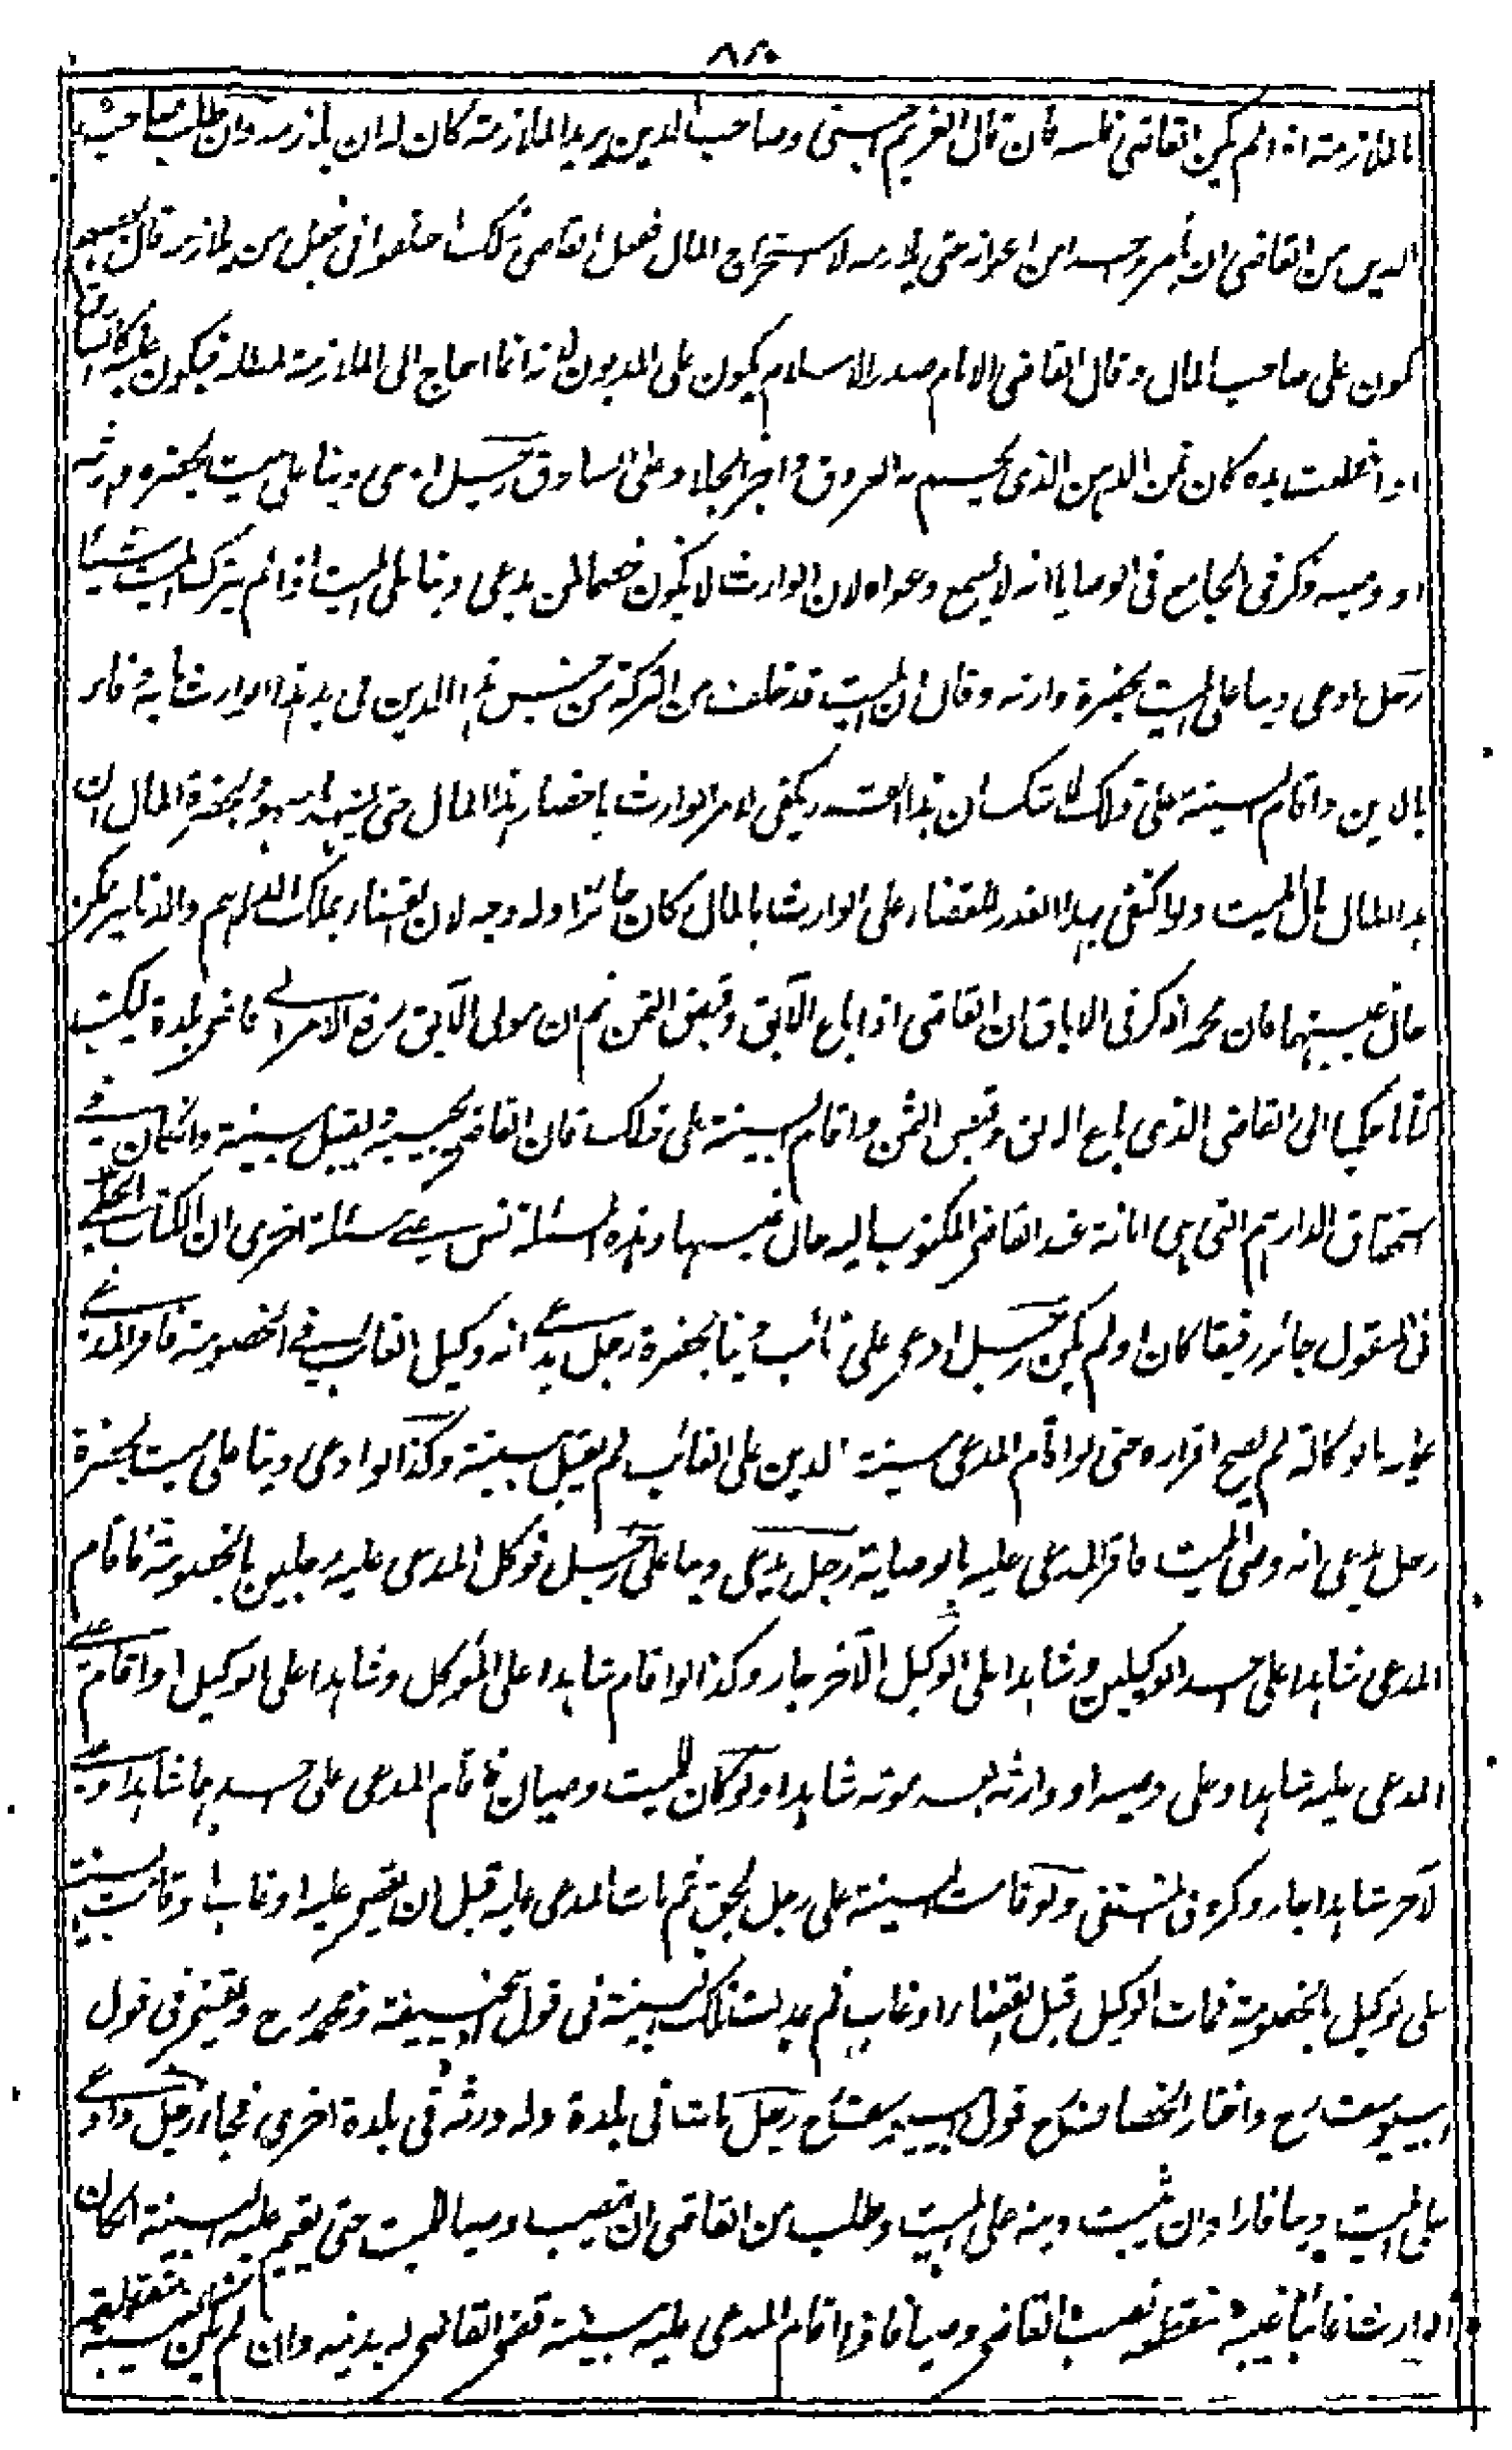 ٨٨٠
بالملازمة اذا لم يكن القاضى فلسه فان قال الغريم احبسنى وصاحب الدين يريد الملازمة كان له ان يلازمه وان طلب صاحب
الدين من القاضى ان يأمر واحدا من اعوانه حتى يلازمه لاستخراج المال ففعل القاضى ذلك اختلفوا فى جعل من يلازمه قال بعضهم
يكون على صاحب المال وقال القاضى الامام صدر الاسلام يكون على المديون لانه انما احتاج الى الملازمة لمطله فيكون عليه كالسارق
اذا قطعت يده كان ثمن الدهن الذى يحسم به العروق واجر الجلاد على السارق رجل ادعى دينا على ميت بحضرة وارثه
او وصيه ذكر فى الجامع فى الوصايا انه لا يسمع دعواه لان الوارث لا يكون خصما لمن يدعى دينا على الميت اذا لم يترك الميت شيئا
رجل ادعى دينا على الميت بحضرة وارثه وقال ان الميت قد خلف من التركة من جنس هذا الدين فى يد هذا الوارث ما به وفاء
بالدين واقام البينة على ذلك لا شك ان هذا القدر يكفى لامر الوارث باحضار هذا المال حتى يشهد الشهود بحضرة المال ان
هذا المال مال الميت ولو اكتفى بهذا القدر للقضاء على الوارث بالمال كان جائزا وله وجه لان القضاء بملك الدراهم والدنانير يمكن
حال غيبتهما فان محمدا ذكر فى الاباق ان القاضى اذا باع الآبق وقبض الثمن ثم ان مولى الآبق رفع الامر الى قاضى بلدة ليكتب
كتابا حكميا الى القاضى الذى باع الآبق وقبض الثمن واقام البينة على ذلك فان القاضى يجيبه ويقبل بينته وان كان فى
استحقاق الدراهم التى هى امانة عند القاضى المكتوب اليه حال غيبتها وهذه المسئلة نص على مسئلة اخرى ان الكتاب الحكمى
فى المنقول جائز رقيقا كان او لم يكن رجل ادعى على غائب دينا بحضرة رجل يدعى انه وكيل الغائب فى الخصومة فاقر المدعى
عليه بالوكالة لم يصح اقراره حتى لو اقام المدعى بينته بالدين على الغائب لم يقبل بينته وكذا لو ادعى دينا على ميت بحضرة
رجل يدعى انه وصى الميت فاقر المدعى عليه بالوصاية رجل يدعى دينا على رجل فوكل المدعى عليه رجلين بالخصومة فاقام
المدعى شاهدا على احد الوكيلين وشاهدا على الوكيل الآخر جاز وكذا لو اقام شاهدا على الموكل وشاهدا على الوكيل او اقام على
المدعى عليه شاهدا وعلى وصيه او وارثه بعد موته شاهدا ولو كان للميت وصيان فاقام المدعى على احدهما شاهدا وعلى
الآخر شاهدا جاز ذكره فى المنتقى ولو قامت البينة على رجل بحق ثم مات المدعى عليه قبل ان يقضى عليه او غاب او قامت البينة
على وكيل بالخصومة فمات الوكيل قبل القضاء او غاب ثم عدلت تلك البينة فى قول ابيحنيفة ومحمد رح ويقضى فى قول
ابى يوسف رح واختار الخصاف رح قول ابى يوسف رح رجل مات فى بلدة وله ورثة فى بلدة اخرى فجاء رجل وادعى
على الميت دينا فاراد ان يثبت دينه على الميت وطلب من القاضى ان ينصب وصيا للميت حتى يقيم عليه البينة ان كان
الوارث غائبا غيبة منقطعة نصب القاضى وصيا فاذا اقام المدعى عليه بينته قضى القاضى له بدينه وان لم يكن الغيبة منقطعة